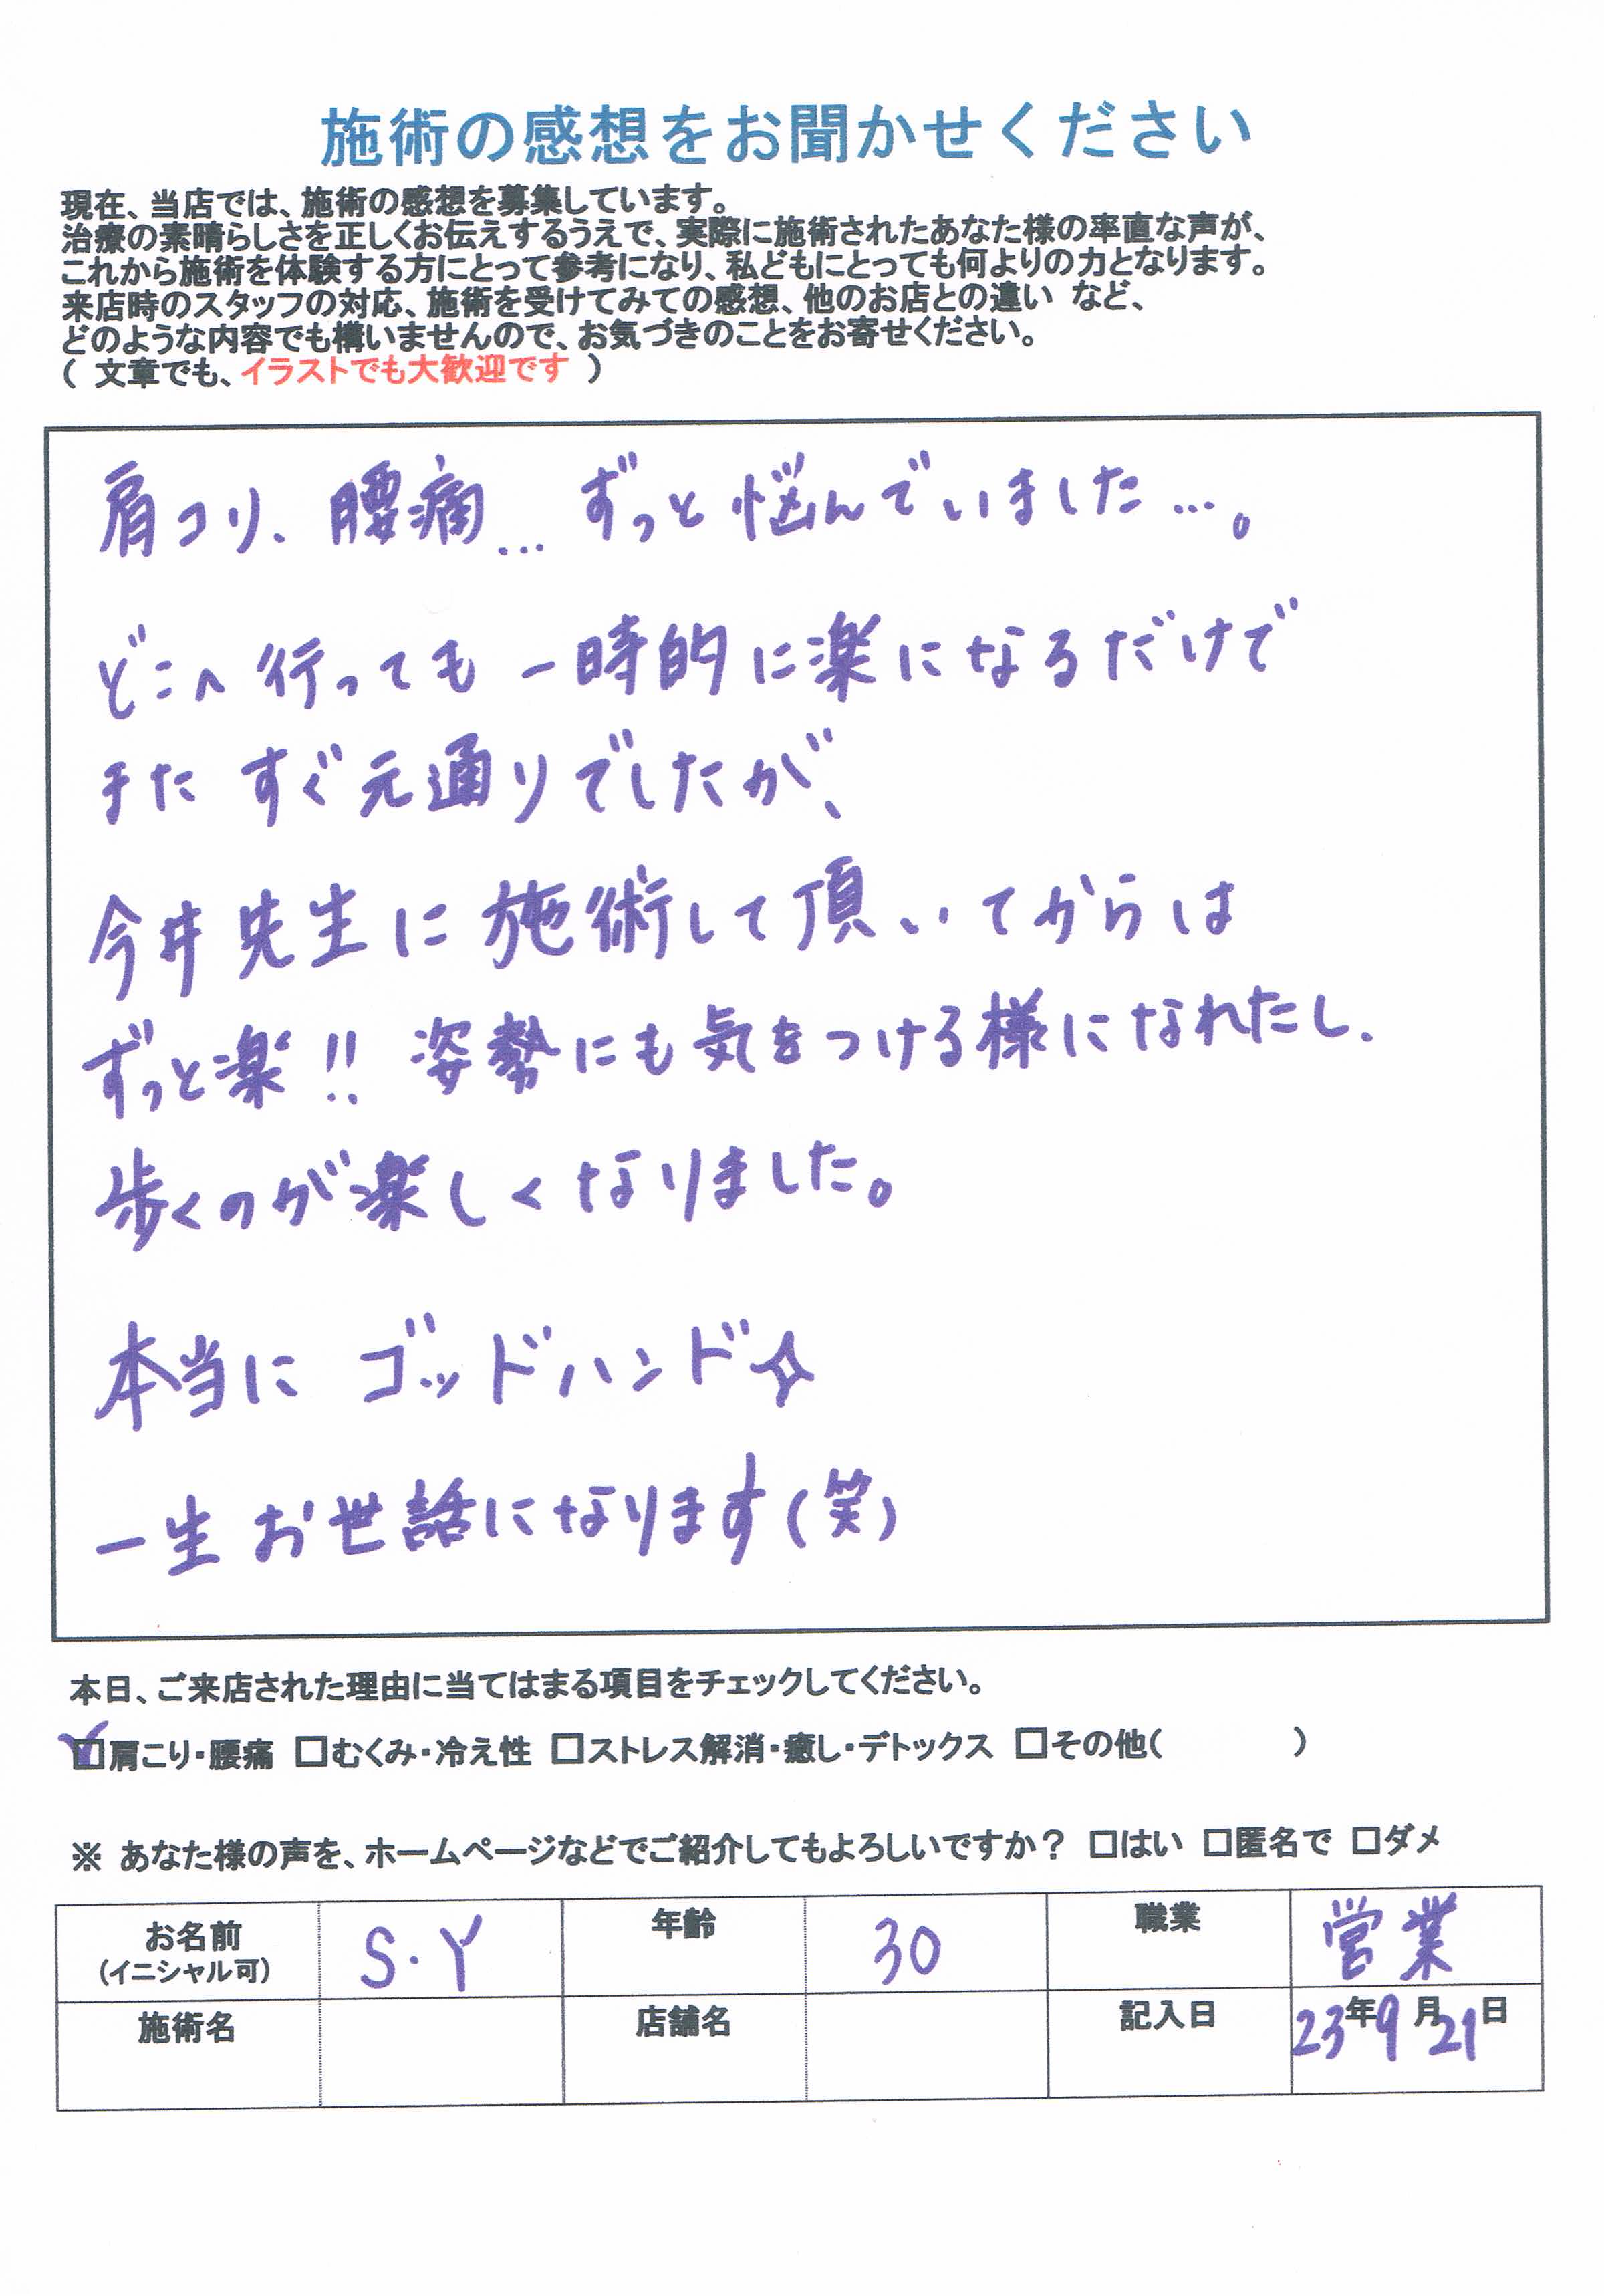 施術の感想をお聞かせください
現在、当店では、施術の感想を募集しています。
治療の素晴らしさを正しくお伝えするうえで、実際に施術されたあなた様の率直な声が、
これから施術を体験する方にとって参考になり、私どもにとっても何よりの力となります。
来店時のスタッフの対応、施術を受けてみての感想、他のお店との違い など、
どのような内容でも構いませんので、お気づきのことをお寄せください。
( 文章でも、イラストでも大歓迎です )
肩コリ、腰痛… ずっと悩んでいました…。
どこへ行っても一時的に楽になるだけで
また すぐ元通りでしたが、
今井先生に施術して頂いてからは
ずっと楽!! 姿勢にも気をつける様になれたし、
歩くのが楽しくなりました。
本当に ゴッドハンド☆
一生お世話になります(笑)
本日、ご来店された理由に当てはまる項目をチェックしてください。
☑肩こり・腰痛 □むくみ・冷え性 □ストレス解消・癒し・デトックス □その他( )
※ あなた様の声を、ホームページなどでご紹介してもよろしいですか？ □はい □匿名で □ダメ
お名前 S・Y 年齢 30 職業 営業
(イニシャル可)
施術名 店舗名 記入日 23年9月21日